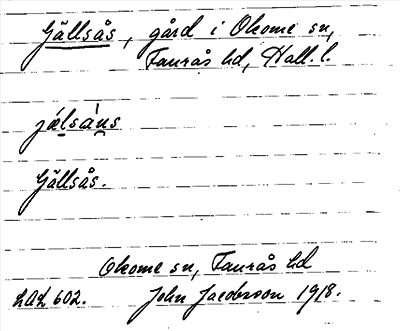 Gällsås, gård i Okome sn,
Faurås hd, Hall. l.
jälsåns
Gällsås.
Okome sn, Faurås hd
LAL 602. John Jacobsson 1918.